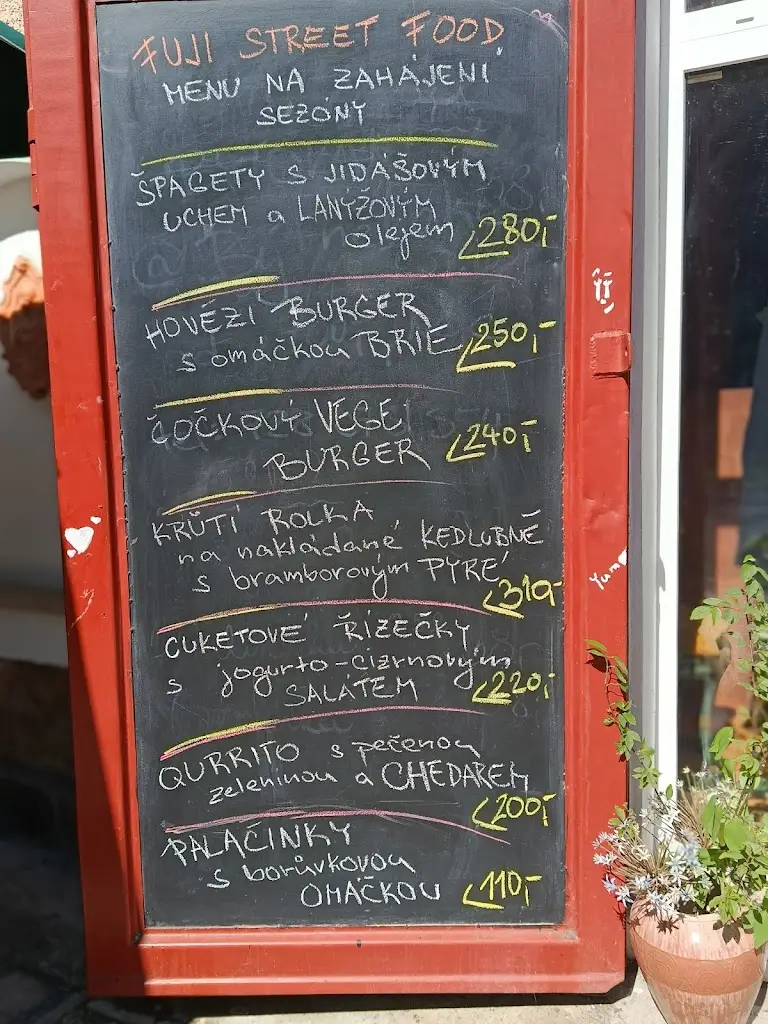 FUJI STREET FOOD
MENU NA ZAHÁJENÍ
SEZÓNY
ŠPAGETY S JIDÁŠOVÝM
UCHEM a LANÝŽOVÝM
olejem 280,-
HOVĚZÍ BURGER
s omáčkou BRIE 250,-
ČOČKOVÝ VEGE
BURGER 240,-
KRŮTÍ ROLKA
na nakládané KEDLUBNĚ
s bramborovým PYRÉ
310,-
CUKETOVÉ ŘÍZEČKY
s jogurto-cizrnovým
SALÁTEM 220,-
QURRITO s pečenou
zeleninou a CHEDAREM
200,-
PALAČINKY
s borůvkovou
OMÁČKOU 110,-
Yum